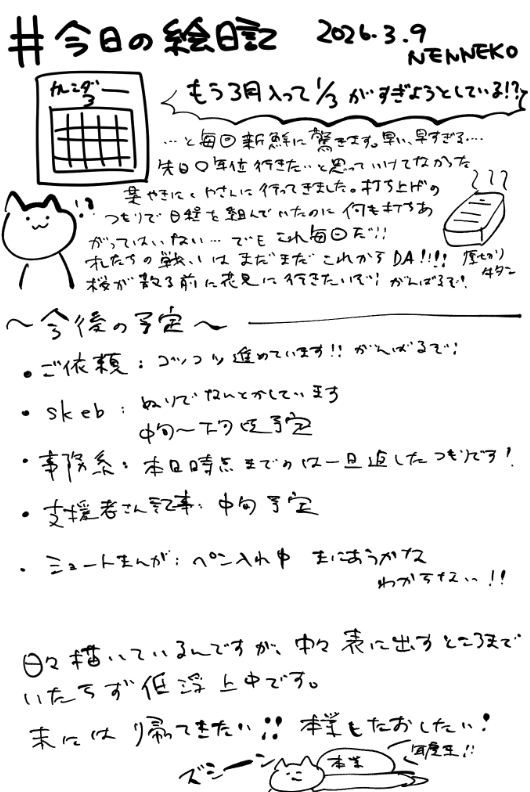 #今日の絵日記
2026.3.9
NENNEKO
カレンダー
3
もう3月入って1/3がすぎようとしている!?
…と毎回新鮮に驚きます。早い、早すぎる…
先日〇年位行きたいと思っていけてなかった
焼やきにくやさんに行ってきました。打ち上げの
つもりで日程を組んでいたのに何も打ちあ
がってはいない…でもこれ毎回だ!!
おれたちの戦いはまだまだこれからDA!!!!
桜が散る前に花見に行きたいぞ!がんばるぞ!
厚切り
牛タン
〜今後の予定〜
・ご依頼:コツコツ進めています!!がんばるぞ!
・skeb:ぬりでなんとかしています
中旬〜下旬位予定
・事務系:本日時点までのは一旦返したつもりです!
・支援者さん記事:中旬予定
・ミュートまんが:ペン入れ中 まにあうかな
わからない!!
日々描いているんですが、中々表に出すところまで
いたらず低浮上中です。
末には帰ってきたい!!本業もたおしたい!
ズシーン
本業